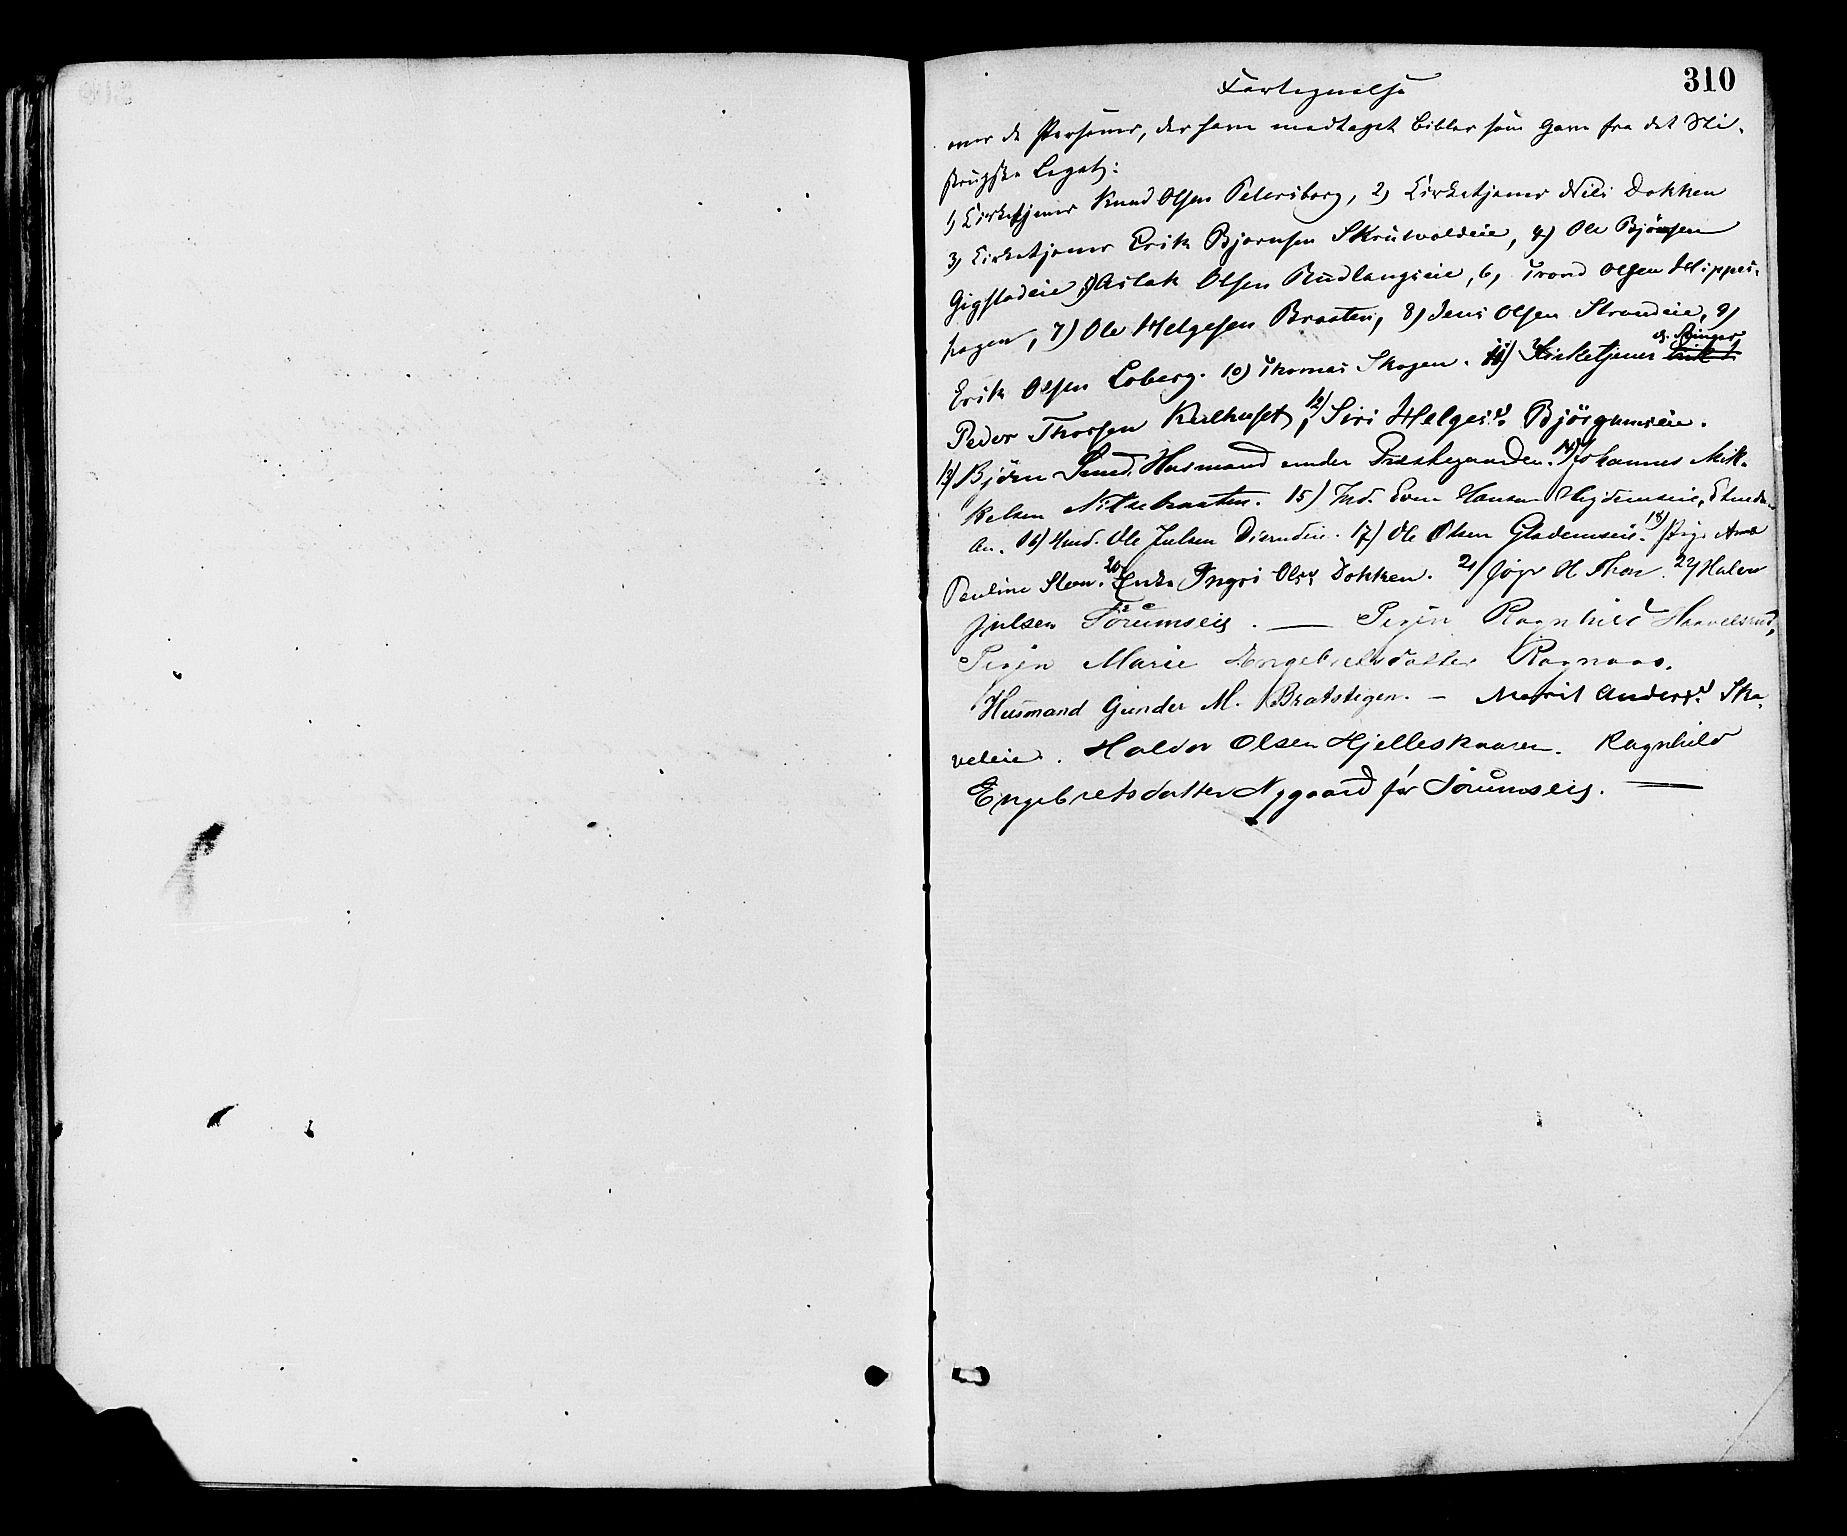 310
Fortegnelse
over de Personer, der have modtaget Bibler som Gave fra det
Legat:
1) Kirketjener Knud Olsen Petersborg, 2) Kirketjener Nils Dokken
3) Kirketjener Erik Bjørnsen Skrutvoldeie, 4) Ole Bjørnsen
Gigstadeie 5) Aslak Olsen Rudlangseie, 6) Trond Olsen
hagen, 7) Ole Helgesen Braaten, 8) Jens Olsen Strandeie, 9)
Erik Olsen Loberg. 10) Thomas Skogen. 11) Kirketjener
Peder Thorsen Kalkuset, 12) Siri Helgesd. Bjørgumseie.
13) Björn Husmand under Præstegaarden. 14) Johannes Mik-
kelsen Nilsebraaten. 15) Ind. Even Hansen
16) Hmd. Ole Julsen 17) Ole Olsen Glademseie. 18) Pige Anne
Pauline Steen. 20) Enke Ingri Olsd. Dokken. 21) H. Thon. 22) Halvor
Julsen Förumseie. — Pigen Ragnhild Haavelsrud,
Pigen Marie Engebretsdatter Rognaas.
Husmand Gunder M. Bratstigen. — Marit Andersd. Ska-
veleie. Halvor Olsen Hjelleskaasen. Ragnhild
Engebretsdatter Nygaard før Sörumseie. —